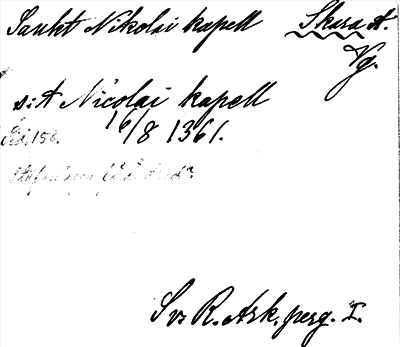 Sankt Nikolai kapell Skara st.
Vg.
s:t Nicolai kapell
16/8 1361.
Sid. 158.
Sv R. Ark. perg. I.